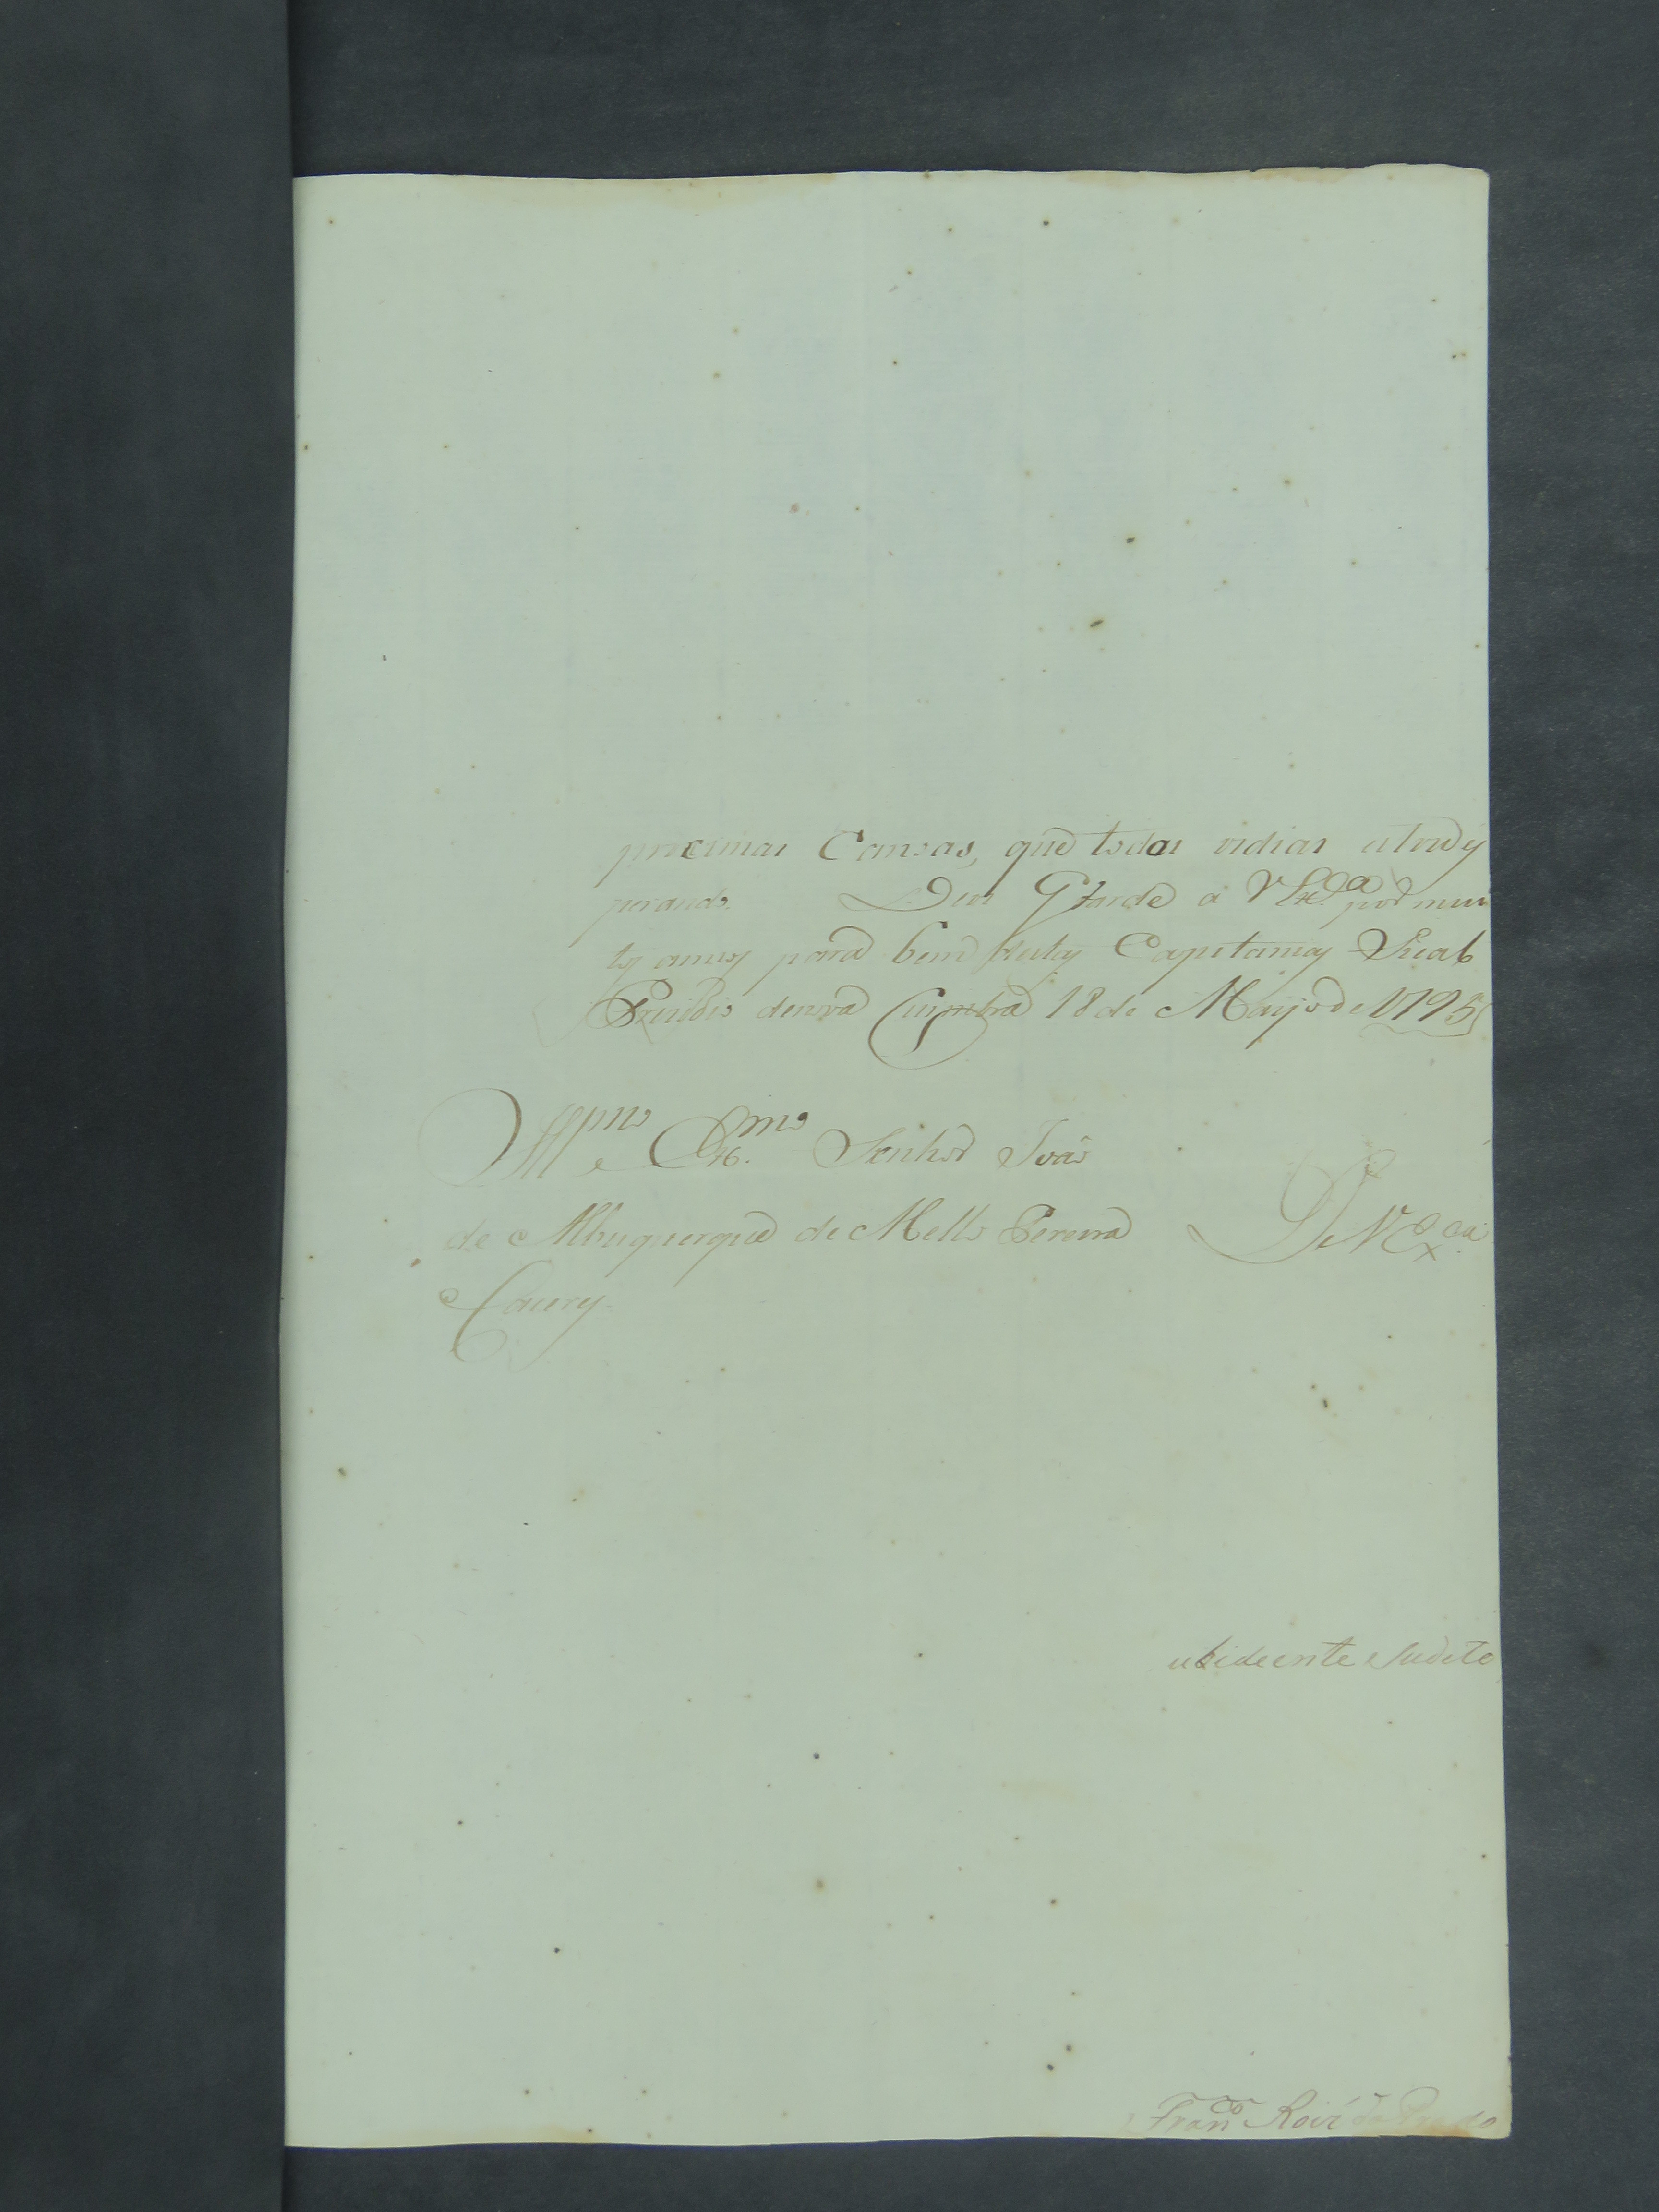 proximas Canoas, que todos os dias estou es
perando. Deos Guarde a VEx.ª por mui
tos annos para bem destas Capitanias Real
Prezidio de nova Coimbra 18 de Mayo de 1795
Illmo e Exmo Senhor João
de Albuquerque de Mello Pereira De V Ex.cia
e Caceres
obidiente Sudito
Franco Roiz do Prado